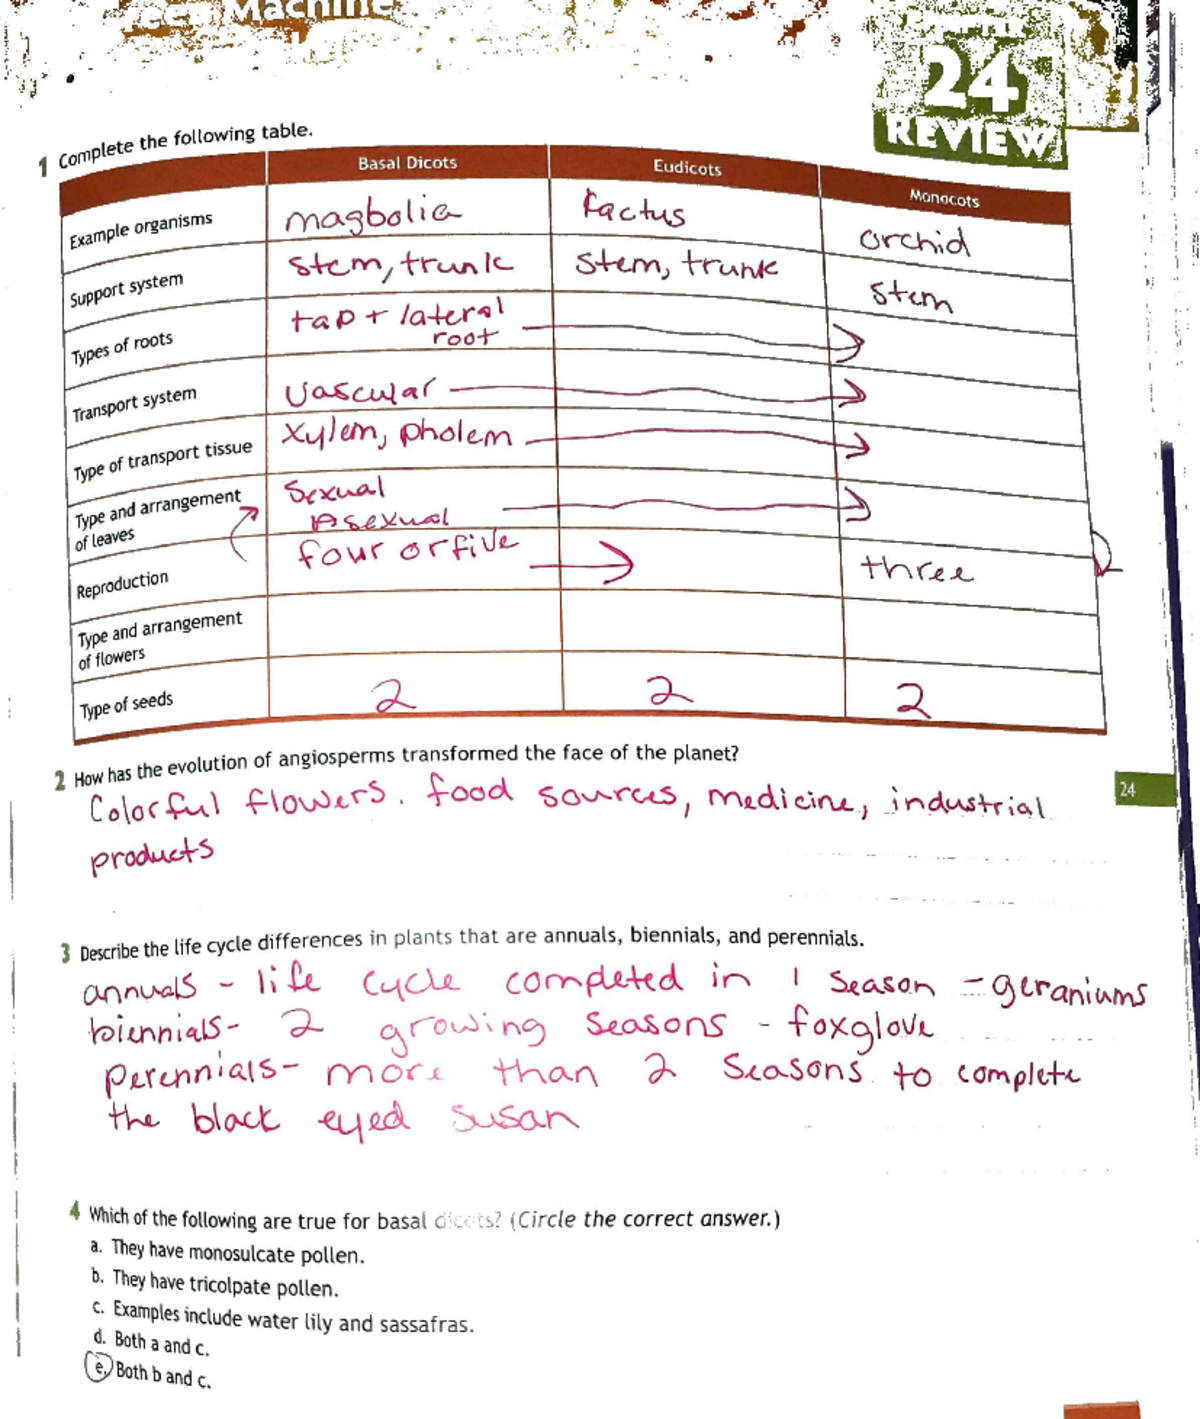 Machine
24
REVIEW
1 Complete the following table.
Basal Dicots Eudicots Monocots
Example organisms magbolia Kactus orchid
Support system stem, trunk stem, trunk stem
Types of roots tap + lateral
root
Transport system vascular
Type of transport tissue xylem, pholem
Type and arrangement
of leaves
Sexual
Asexual
Reproduction four or five three
Type and arrangement
of flowers
Type of seeds 2 2 2
2 How has the evolution of angiosperms transformed the face of the planet?
Colorful flowers. food sources, medicine, industrial
products
24
3 Describe the life cycle differences in plants that are annuals, biennials, and perennials.
annuals - life cycle completed in 1 season - geraniums
biennials- 2 growing seasons - foxglove
Perennials- more than 2 seasons to complete
the black eyed susan
4 Which of the following are true for basal dicots? (Circle the correct answer.)
a. They have monosulcate pollen.
b. They have tricolpate pollen.
c. Examples include water lily and sassafras.
d. Both a and c.
e. Both b and c.